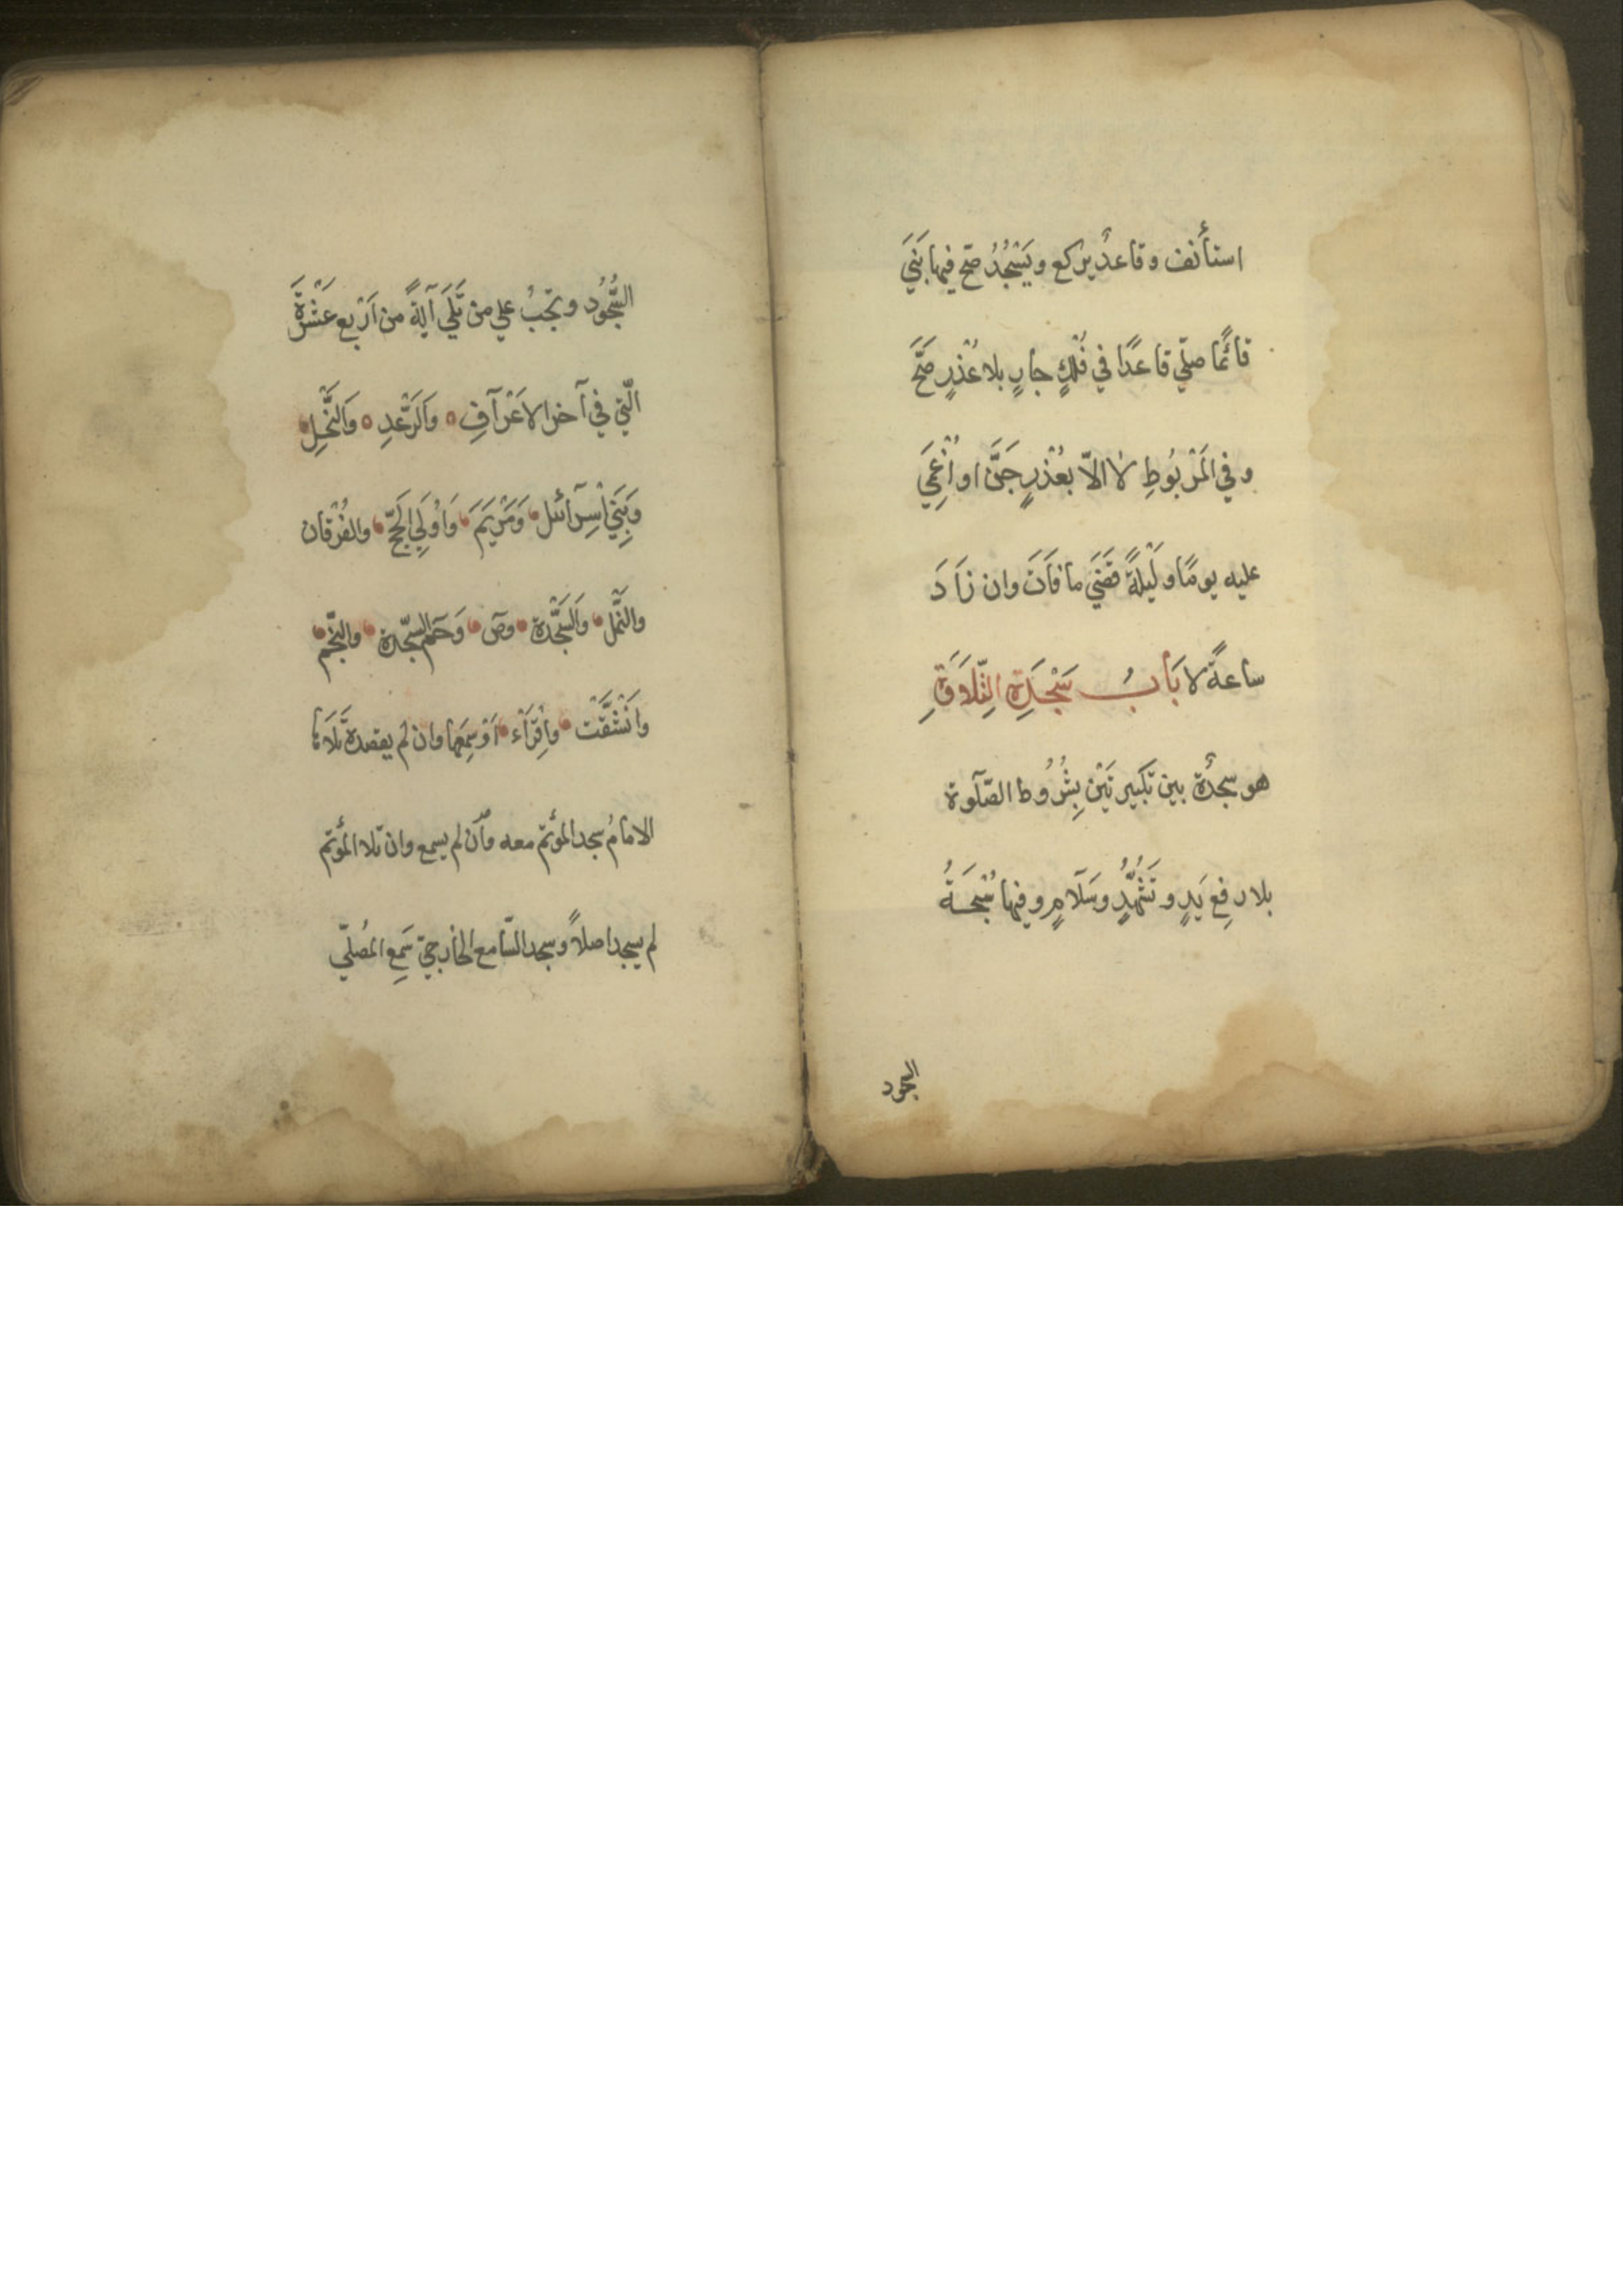 استأنف وقاعدٌ يركع ويَسْجُدُ صَحّ فيها بَنَي
قائمًا صلّي قاعدًا في فُلْكٍ جارٍ بلا عُذْرٍ صَحَّ
وفي المَرْبُوطِ لا الاّ بعُذْرٍ جَنَّ او اُغْمِيَ
عليه يومًا ولَيْلَةً قَضَي ما فَاتَ وان زَادَ
ساعةً لا بَابُ سَجْدَةِ التِّلَاوَةِ
هو سجدةٌ بين تكبيرتَيْن بِشُرُوط الصّلٰوة
بلا رفعِ يَدٍ وتَشَهُّدٍ وسَلَامٍ وفيها سُبْحَةُ
السجود
السُّجُود وتجبُ علي من تَلَي آيَةً من اَرْبع عَشْرَةَ
الّتي في آخر الاَعْرَآفِ وَالرَّعْدِ وَالنَّحْلِ
وَبَنِي اْسرَآئيل وَمَرْيَمَ وَاُولَي الحَجّ والفُرْقان
والنَّمْل وَالسَّجْدة وصٓ وَحٓم السّجدة والنّجْم
وانْشَقَّتْ واِقْرَاْء اَوْ سَمِعَها وان لم يقصدة تَلَاهَا
الامامُ سجد المؤتم معه وَاْن لم يسمع وان تلا المؤتم
لم يسجد اصلاً وسجد السّامع الخارجيّ سَمِعَ المُصَلّي